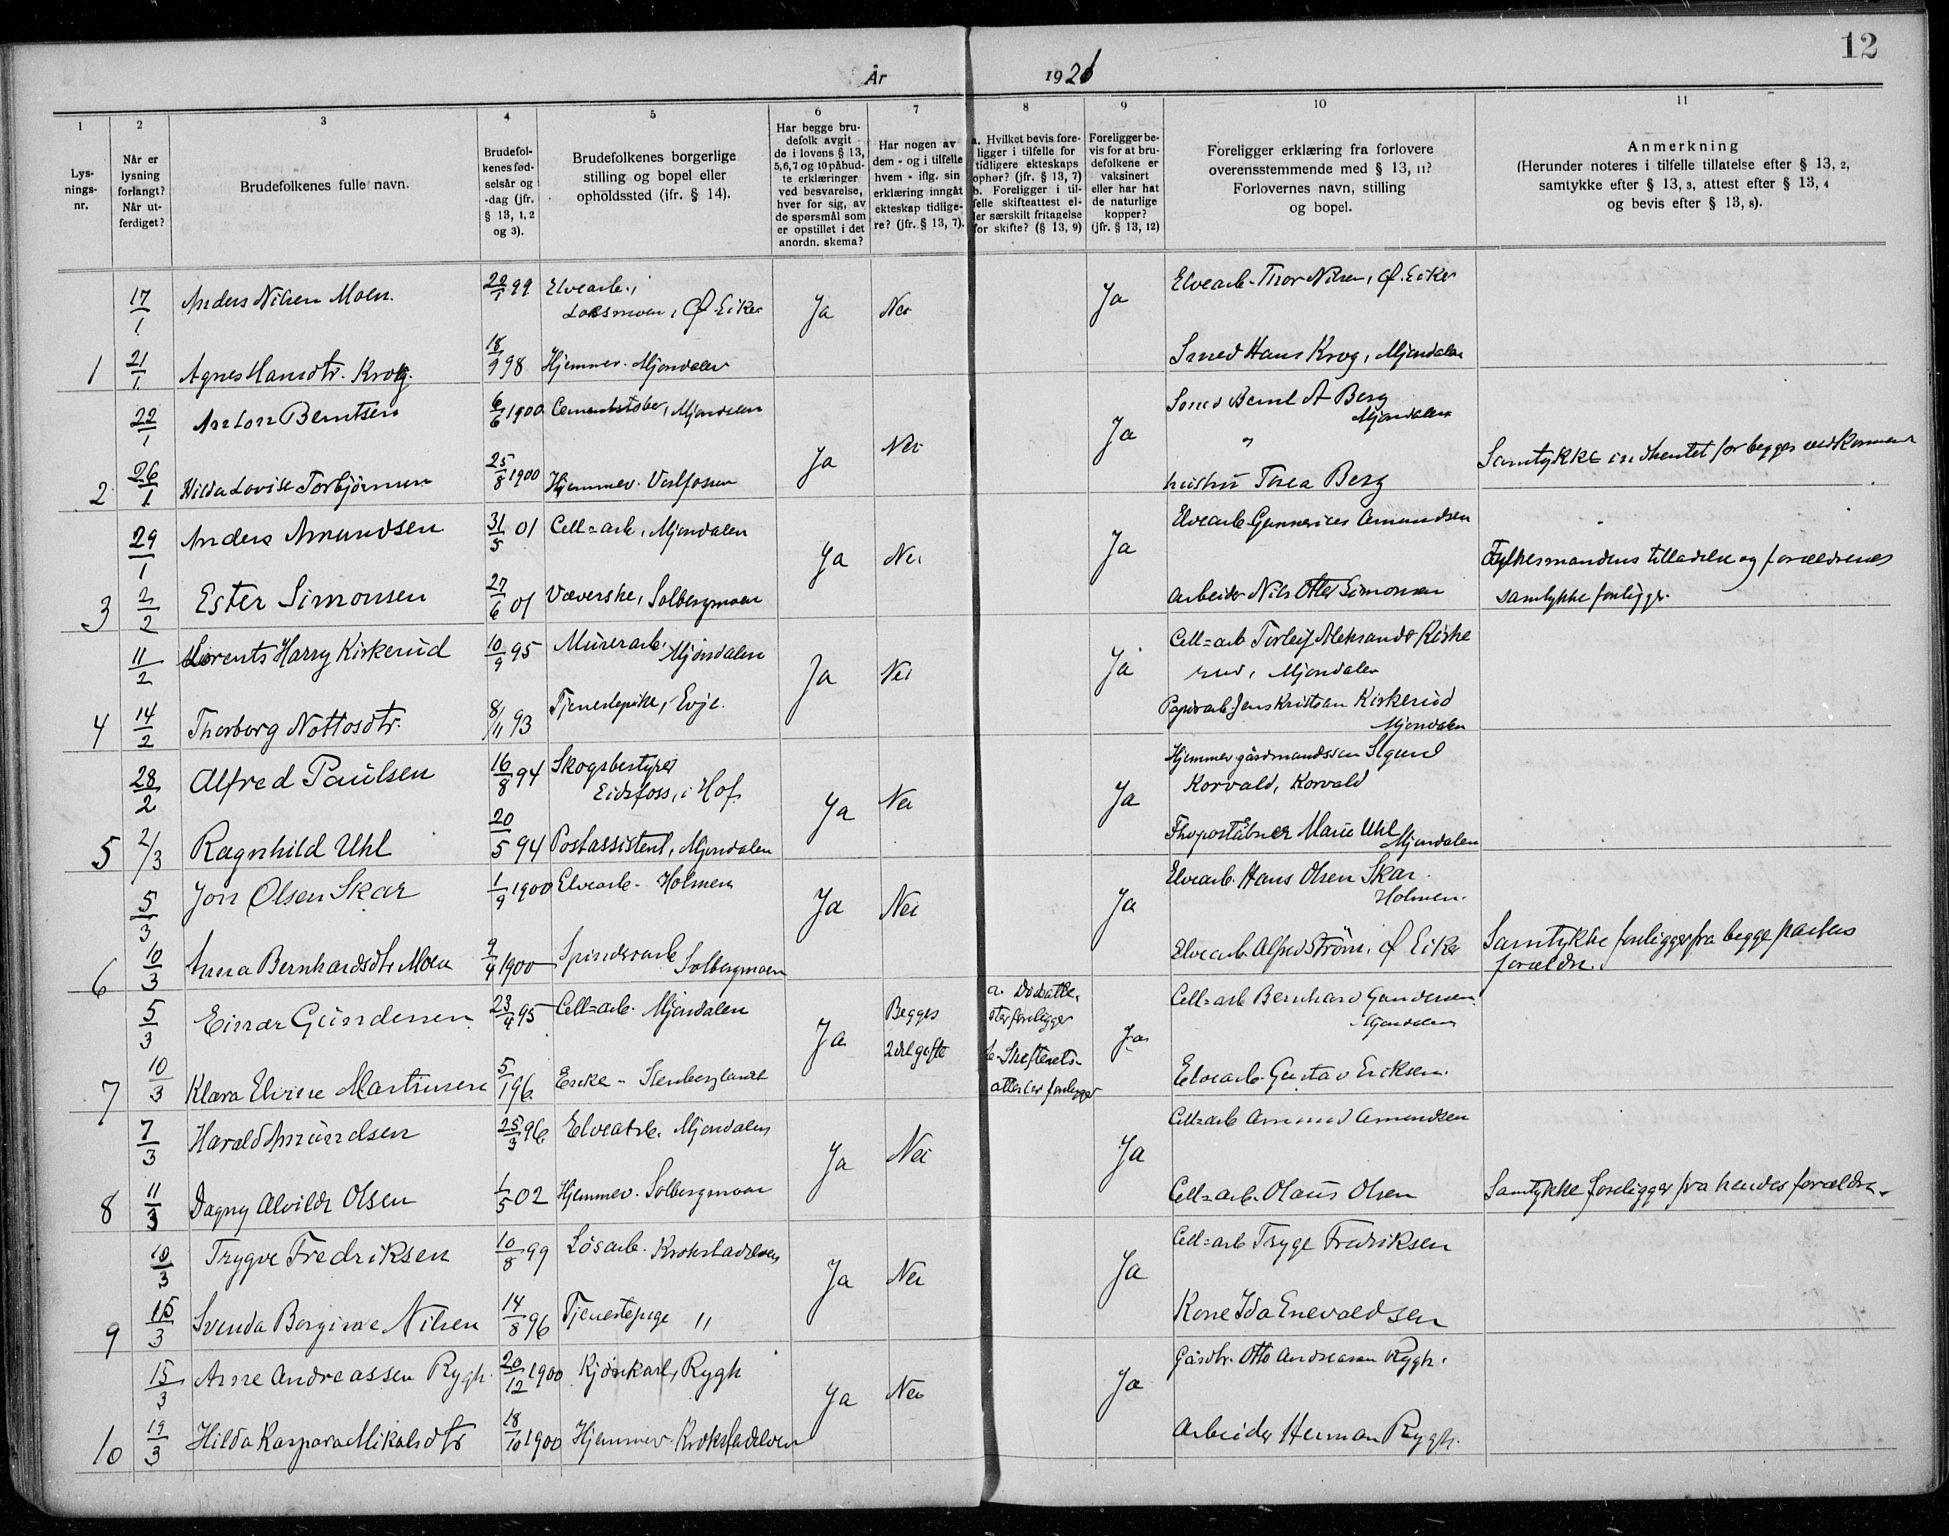 År 1921
12
1
2
3
4
5
6
7
8
9
10
11
Lys-
nings-
nr.
Når er
lysning
forlangt?
Når ut-
ferdiget?
Brudefolkenes fulle navn.
Brudefol-
kenes fød-
selsår og
-dag (jfr.
§ 13, 1, 2
og 3).
Brudefolkenes borgerlige
stilling og bopel eller
opholdssted (jfr. § 14).
Har begge bru-
defolk avgit
de i lovens § 13,
5,6,7 og 10 påbud-
te erklæringer
ved besvarelse,
hver for sig, av
de spørsmål som
er opstillet i det
anordn. skema?
Har nogen av
dem - og i tilfelle
hvem - iflg. sin
erklæring inngått
ekteskap tidlige-
re? (jfr. § 13, 7).
a. Hvilket bevis fore-
ligger i tilfelle for
tidligere ekteskaps
ophør? (jfr. § 13, 7)
b. Foreligger i til-
felle skifteattest el-
ler særskilt fritagelse
for skifte? (§ 13, 9)
Foreligger be-
vis for at bru-
defolkene er
vaksinert
eller har hat
de naturlige
kopper?
(jfr. § 13, 12)
Foreligger erklæring fra forlovere
overensstemmende med § 13, 11?
Forlovernes navn, stilling
og bopel.
Anmerkning
(Herunder noteres i tilfelle tillatelse efter § 13, 2,
samtykke efter § 13, 3, attest efter § 13, 4
og bevis efter § 13, 8).
17/1 Anders Nilsen Moen. 22/1 99 Elvearb., Ja Nei Ja Elvearb. Thor Nilsen, Ø. Eiker
Loesmoen, Ø. Eiker
1 21/1 Agnes Hansdtr. Krog. 18/9 98 Hjemmev. Mjøndalen Smed Hans Krog, Mjøndalen
22/1 Anton Berntsen 6/6 1900 Cementstøber, Mjøndalen Ja Nei Ja Smed Bernt A Berg
Mjøndalen
"
2 26/1 Hilda Lovise Torbjørnsen 25/8 1900 Hjemmev. Vestfossen hustru Thea Berg Samtykke indhentet for begges vedkommende
29/1 Anders Amundsen 31/5 01 Cell=arb, Mjøndalen Ja Nei Ja Elvearb. Gunnerius Amundsen
3 2/2 Ester Simonsen 27/6 01 Væverske, Solbergmoen Arbeider Nils Otter Simonsen Fylkesmandens tilladelse og forældrenes
samtykke foreligger.
11/2 Lorents Harry Kirkerud 10/9 95 Murerarb. Mjøndalen Ja Nei Ja Cell=arb Torleif Aleksander Kirke
rud, Mjøndalen
4 14/2 Thorborg Nottosdtr. 8/11 93 Tjenestepike, Evje. Papirarb. Jens Kristian Kirkerud
Mjøndalen
28/2 Alfred Paulsen 16/8 94 Skogsbestyrer Ja Nei Ja Hjemmev. gårdmandssøn Sigurd
Eidsfoss, i Hof. Korvald, Korvald
5 2/3 Ragnhild Uhl 20/5 94 Postassistent, Mjøndalen Fhv. postaabner Marie Uhl Mjøndalen
5/3 Jon Olsen Skar 1/9 1900 Elvearb. Holmen Ja Nei Ja Elvearb. Hans Olsen Skar.
Holmen.
6 10/3 Anna Bernhardsdtr Moen 9/4 1900 Spinderarb Solbergmoen Elvearb. Alfred Strøm, Ø. Eiker Samtykke foreligger fra begge parters
forældre.
5/3 Einar Gundersen 23/4 95 Cell=arb. Mjøndalen Ja Begges a. Dødsatte- Ja Cell=arb Bernhard Gundersen.
ster foreligger Mjøndalen
2det gifte b. Skifterets-
7 10/3 Klara Elvine Martinsen 5/1 96 Enke - Stenberglandet attester foreligger Elvearb. Gustav Eriksen.
7/3 Harald Amundsen 25/3 96 Elvearb. Mjøndalen Ja Nei Ja Cell=arb Amund Amundsen
8 11/3 Dagny Alvilde Olsen 1/5 02 Hjemmev. Solbergmoen Cell=arb. Olaus Olsen Samtykke foreligger fra hendes forældre.
10/3 Trygve Fredriksen 10/8 99 Løsarb. Krokstadelven Ja Nei Ja Cell=arb Tryge Fredriksen
9 15/3 Svenda Borgine Nilsen 14/8 96 Tjenestepige " Kone Ida Enevaldsen
15/3 Arne Andreassen Rygh. 20/12 1900 Kjørekarl, Rygh Ja Nei Ja Gårdbr. Otto Andreassen Rygh.
10 19/3 Hilda Kaspara Mikalsdtr 18/10 1900 Hjemmev. Krokstadelven Arbeider Herman Rygh.